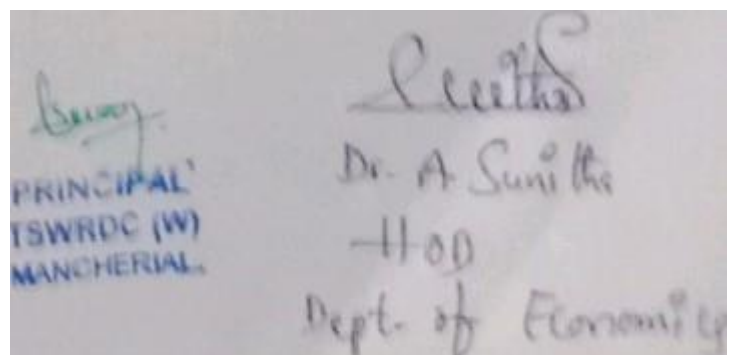 PRINCIPAL
TSWRDC (W)
MANCHERIAL.
Sunitha
Dr. A Sunitha
HOD
Dept. of Economics